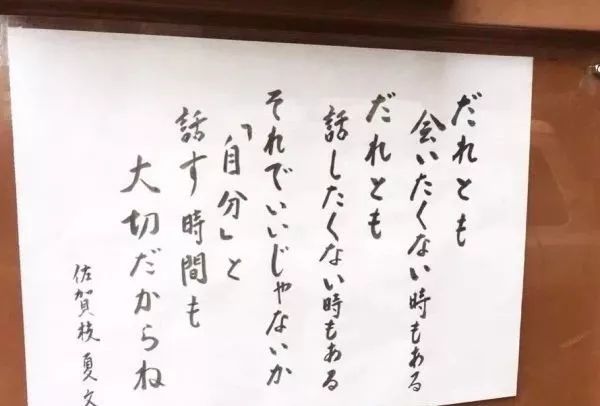 だれとも
会いたくない時もある
だれとも
話したくない時もある
それでいいじゃないか
「自分」と
話す時間も
大切だからね
佐賀枝夏文